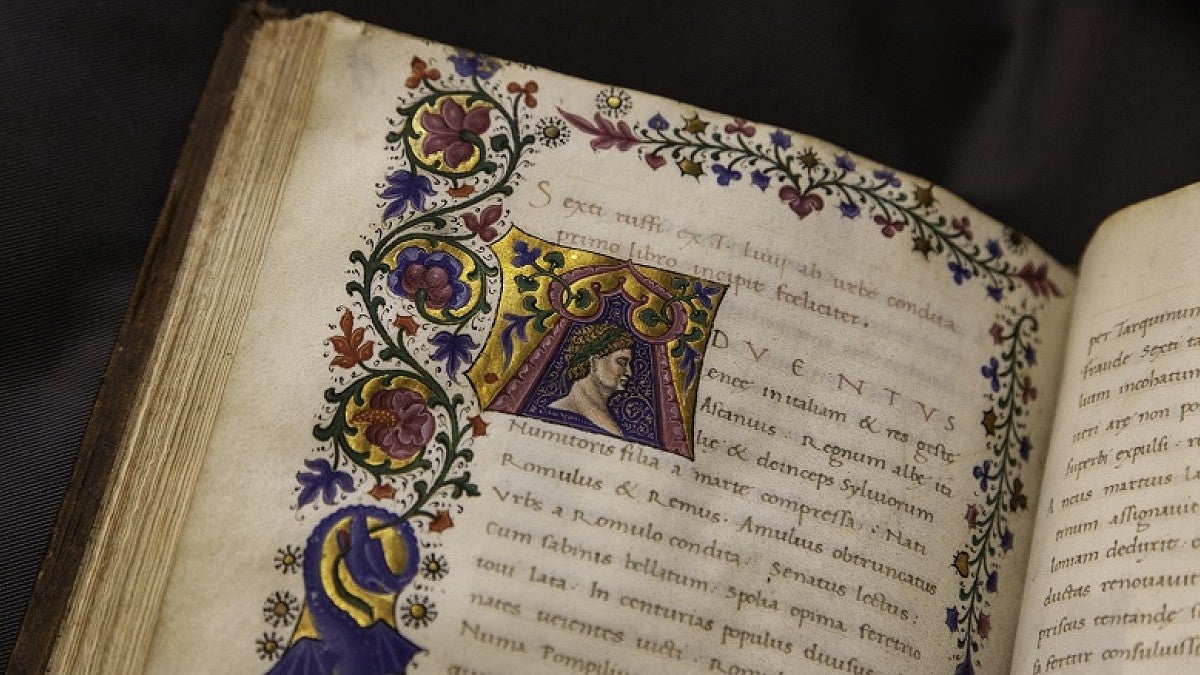 Sexti ruffi ex T. Liuij ab urbe condita
primo libro incipit foeliciter.
ADVENTUS
enee in italiam & res gestę
Ascanius. Regnum albę ita
lię & deinceps Syluiorum
Numitoris filia a marte compressa. Nati
Romulus & Remus. Amulius obtruncatus
Vrbs a Romulo condita. Senatus lectus.
Cum sabinis bellatum. Spolia opima feretrio
ioui lata. In centurias populus diuisus
nates ueientes uicti. Romu
Numa Pompilius
per Tarquinum
fraude Sexti ta
luim incohatum
ueri are non po
superbi expulsi. r
Ancus martius La
tinum assignauit
loniam deduxit. c
ductas renouauit
priscus tentande sc
si fertur consuluisse